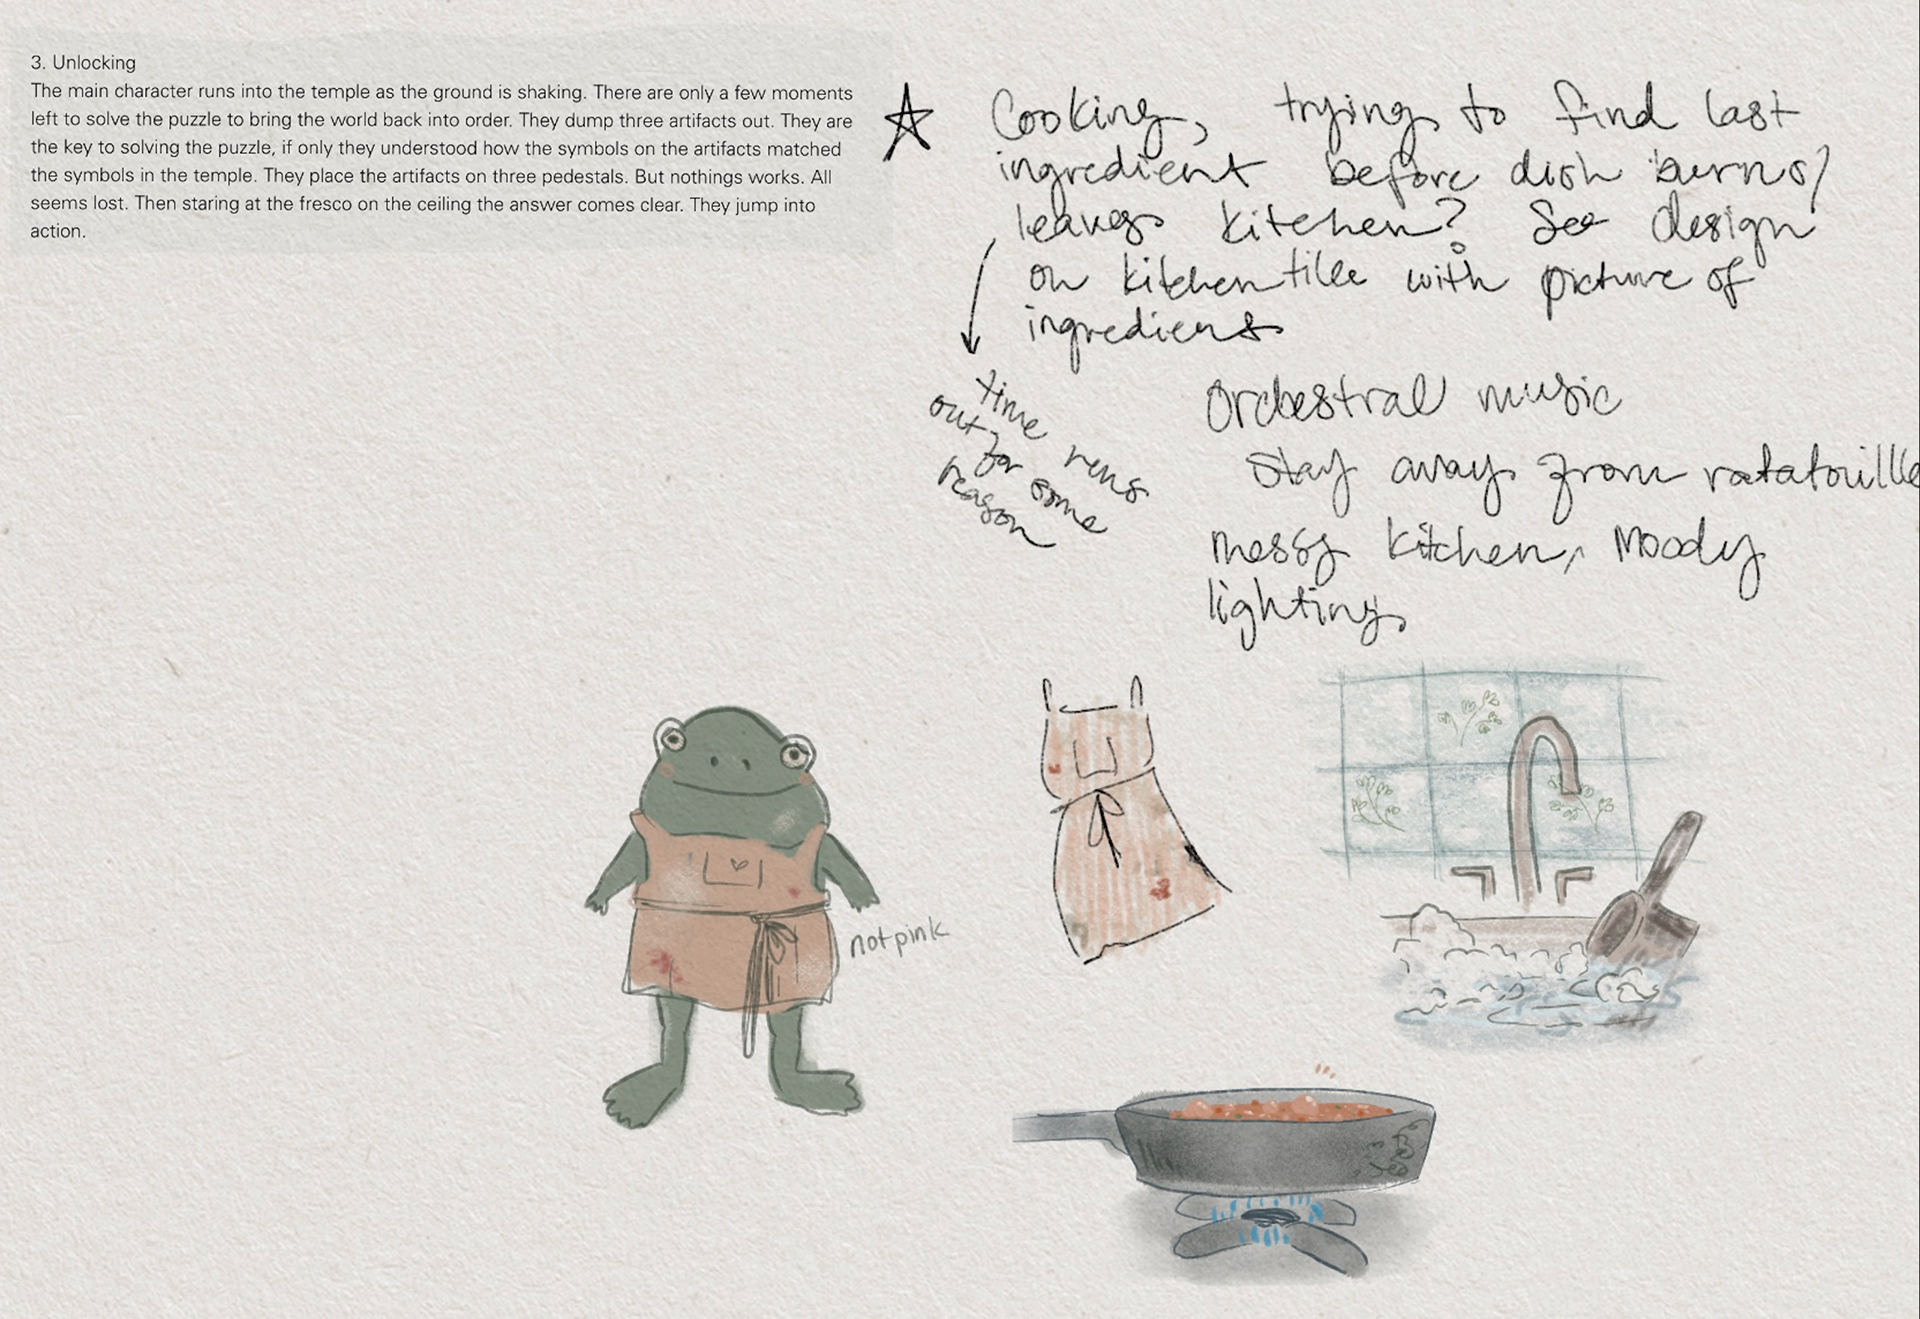 3. Unlocking
The main character runs into the temple as the ground is shaking. There are only a few moments
left to solve the puzzle to bring the world back into order. They dump three artifacts out. They are
the key to solving the puzzle, if only they understood how the symbols on the artifacts matched
the symbols in the temple. They place the artifacts on three pedestals. But nothings works. All
seems lost. Then staring at the fresco on the ceiling the answer comes clear. They jump into
action.
Cooking, trying to find last
ingredient before dish burns/
leaves kitchen? See design
on kitchen tile with picture of
ingredient
time runs
out for some
reason
Orchestral music
stay away from ratatouille
messy kitchen, moody
lighting
not pink